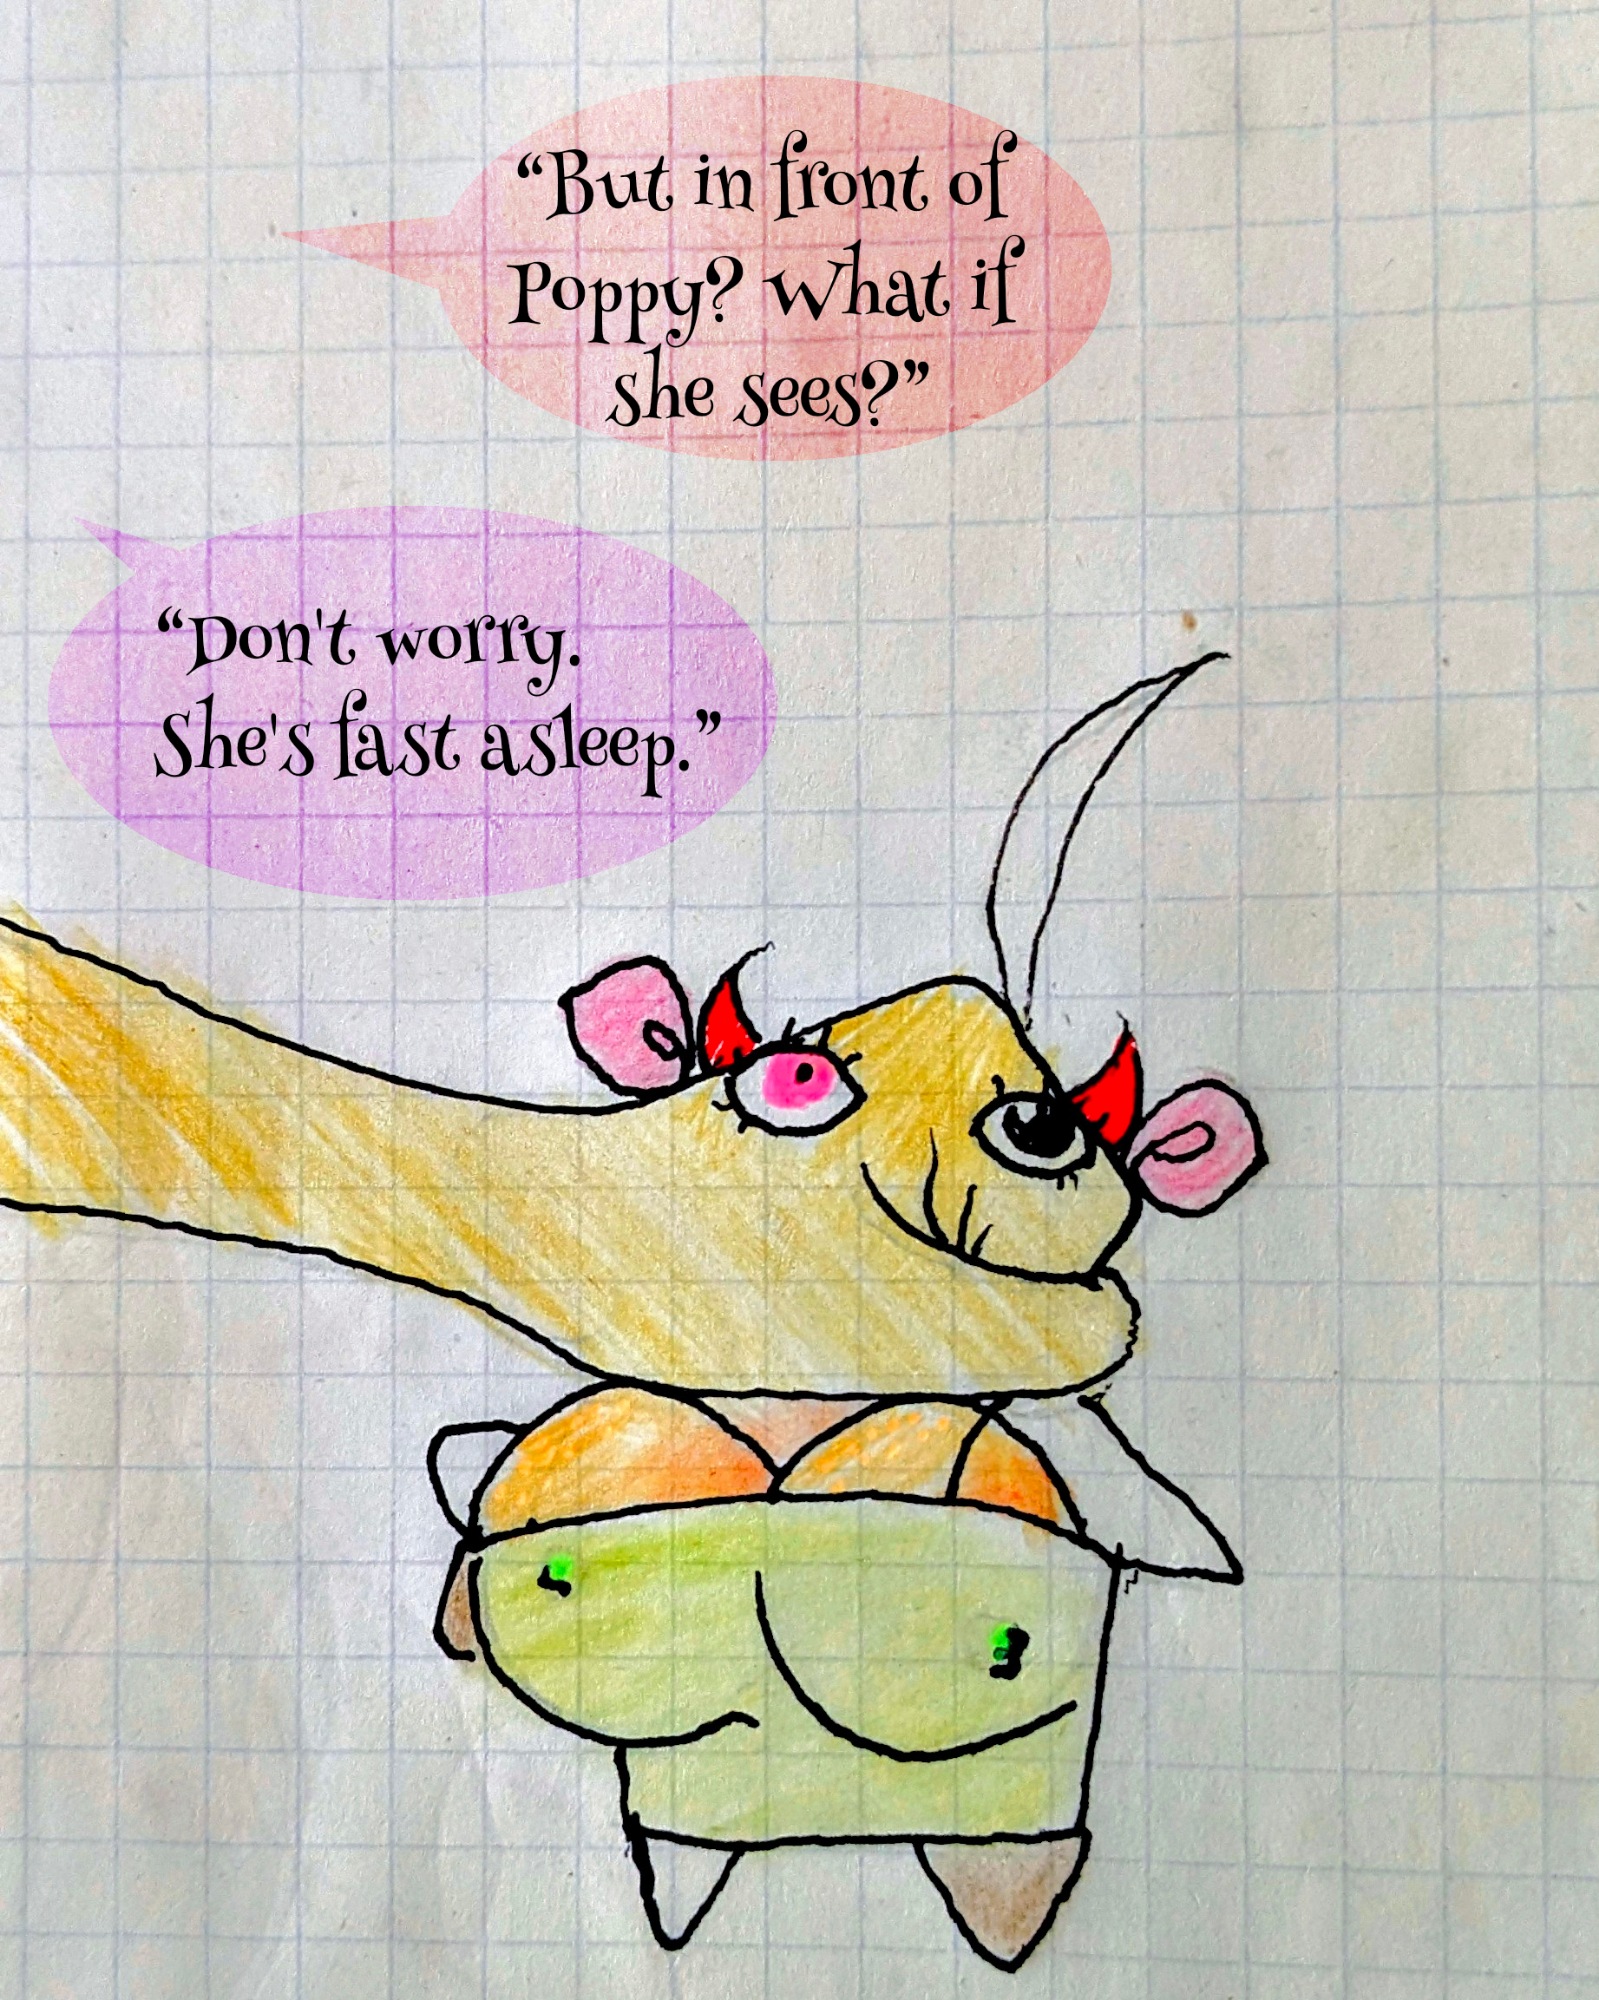 “But in front of
Poppy? What if
she sees?”
“Don't worry.
She's fast asleep.”